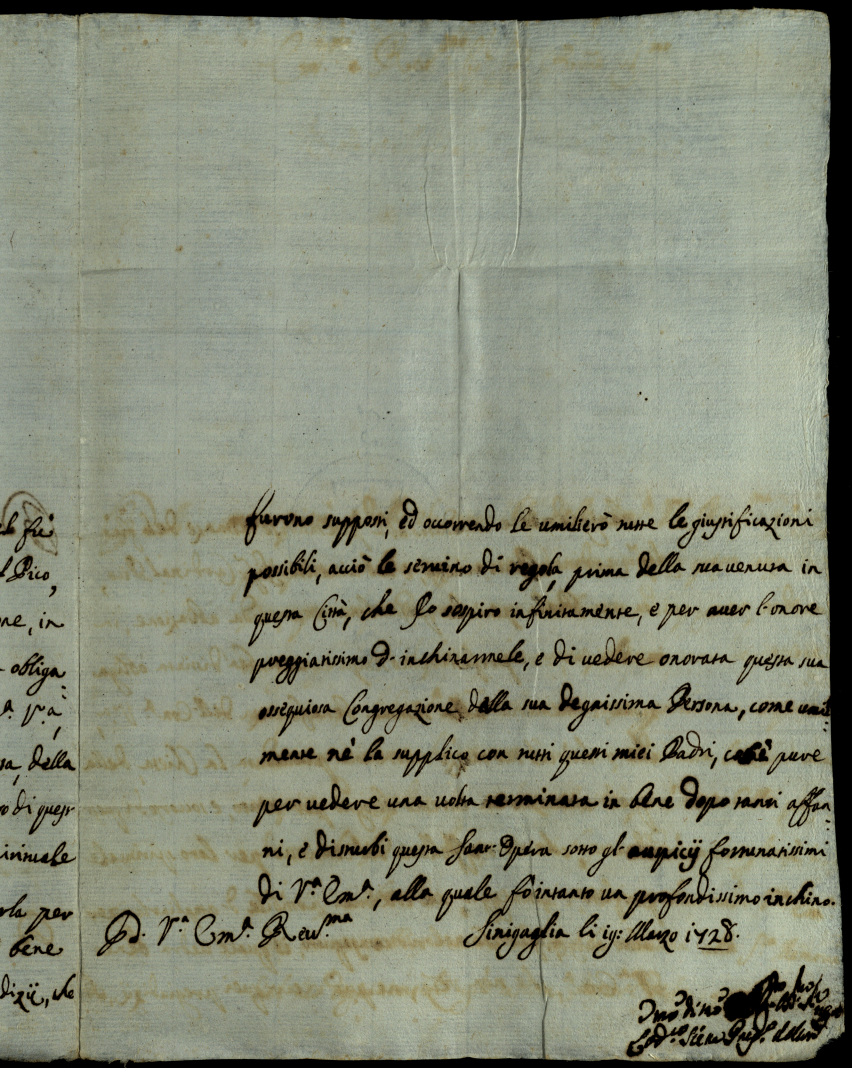 furono supposti, ed occorrendo le umilierò tutte le giustificazioni
possibili, acciò le servino di regola, prima della sua venuta in
questa Città, che Io sospiro infinitamente, e per aver l'onore
preggiatissimo d'inchinarmele, e di vedere onorata questa sua
ossequiosa Congregazione della sua degnissima Persona, come umil=
mente nè la supplico con tutti questi miei Padri, pure
per vedere una volta terminata in bene dopo tanti affan=
ni, e disturbi questa Sant'Opera sotto gl'auspicij fortunatissimi
di V.ª Em.ª, alla quale fò intanto un profondissimo inchino.
Di V.ª Em.ª Rev.ma Sinigaglia li 19: Marzo 1728.
fù
Pico,
in
obliga=
V.ª
della
di quest
per
bene
che